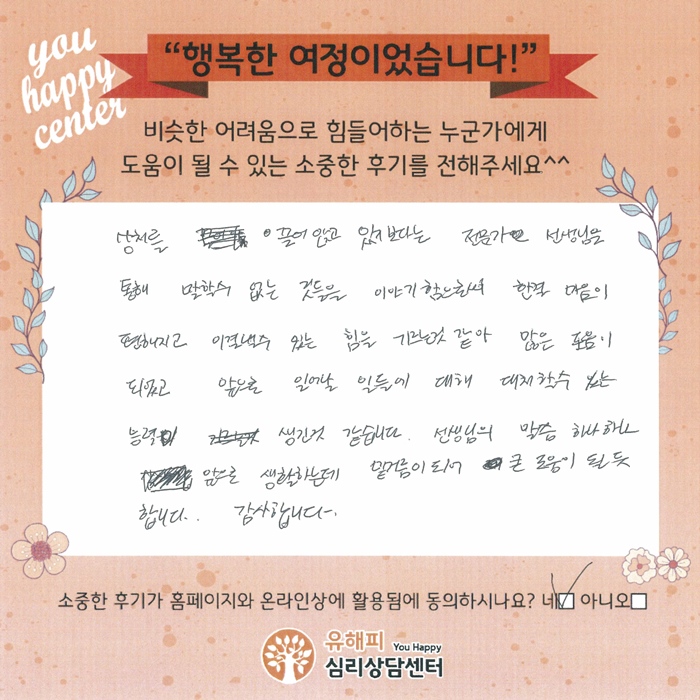 you
happy
center
“행복한 여정이었습니다!”
비슷한 어려움으로 힘들어하는 누군가에게
도움이 될 수 있는 소중한 후기를 전해주세요^^
상처를 끌어안고 있기보다는 전문가 선생님을
통해 말할수 없는 것들을 이야기함으로써 한결 마음이
편해지고 이겨낼수 있는 힘을 기르는것 같아 많은 도움이
되었고 앞으로 일어날 일들에 대해 대처할수 있는
능력이 생긴것 같습니다. 선생님의 말씀 하나하나
앞으로 생활하는데 밑거름이 되어 큰 도움이 될 듯
합니다.. 감사합니다~.
소중한 후기가 홈페이지와 온라인상에 활용됨에 동의하시나요? 네 아니오
유해피 You Happy
심리상담센터